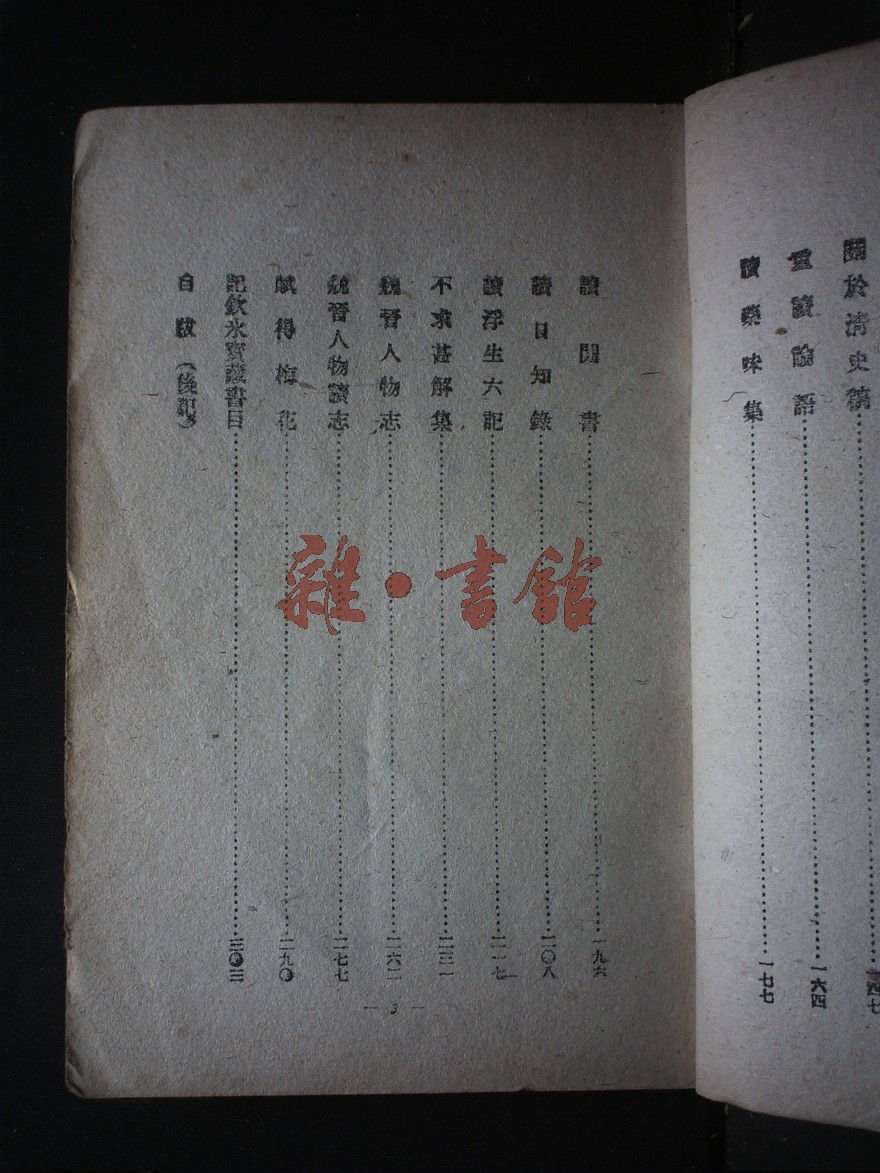 關於清史稿……一四七
重讀論語……一六四
讀藥味集……一七七
讀閒書……一九六
讀日知錄……二〇八
讀浮生六記……二一七
不求甚解集……二三一
魏晉人物志……二六二
魏晉人物讀志……二七七
賦得梅花……二九〇
記飲水室藏書目……三〇三
自跋（後記）
— 3 —
雜·書館